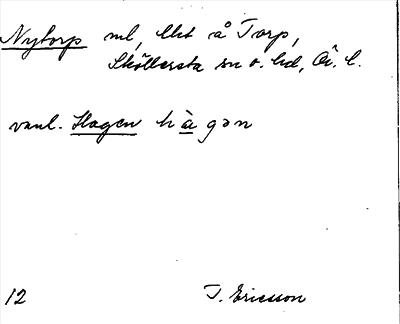 Nytorp ml, lht å Torp,
Sköllersta sn o. hd, Ör. l.
vanl. Hagen hàgən
12 T. Ericsson